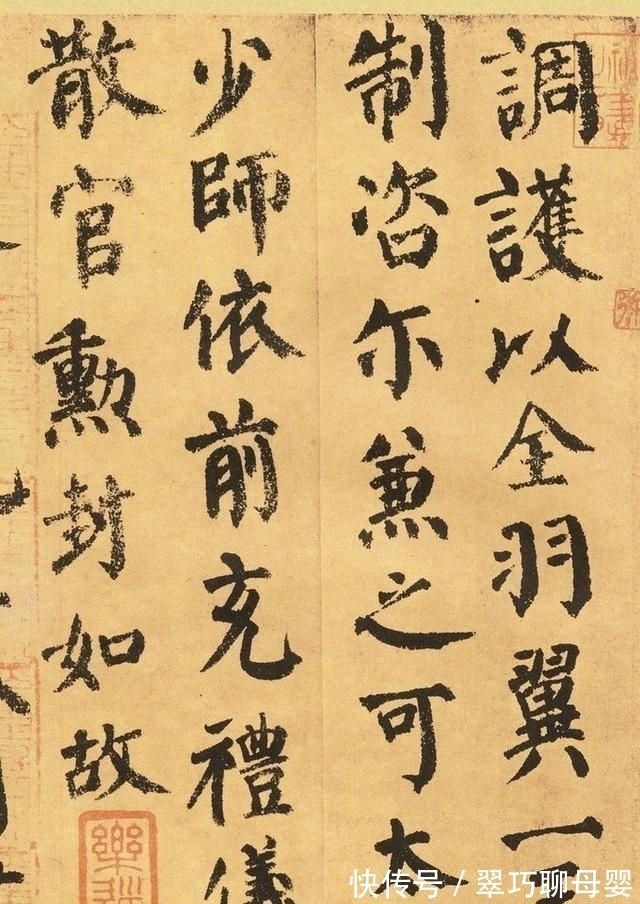 調護以全羽翼一
制咨尔兼之可太
少師依前充禮儀
散官勳封如故
快传号 / 翠巧聊母婴